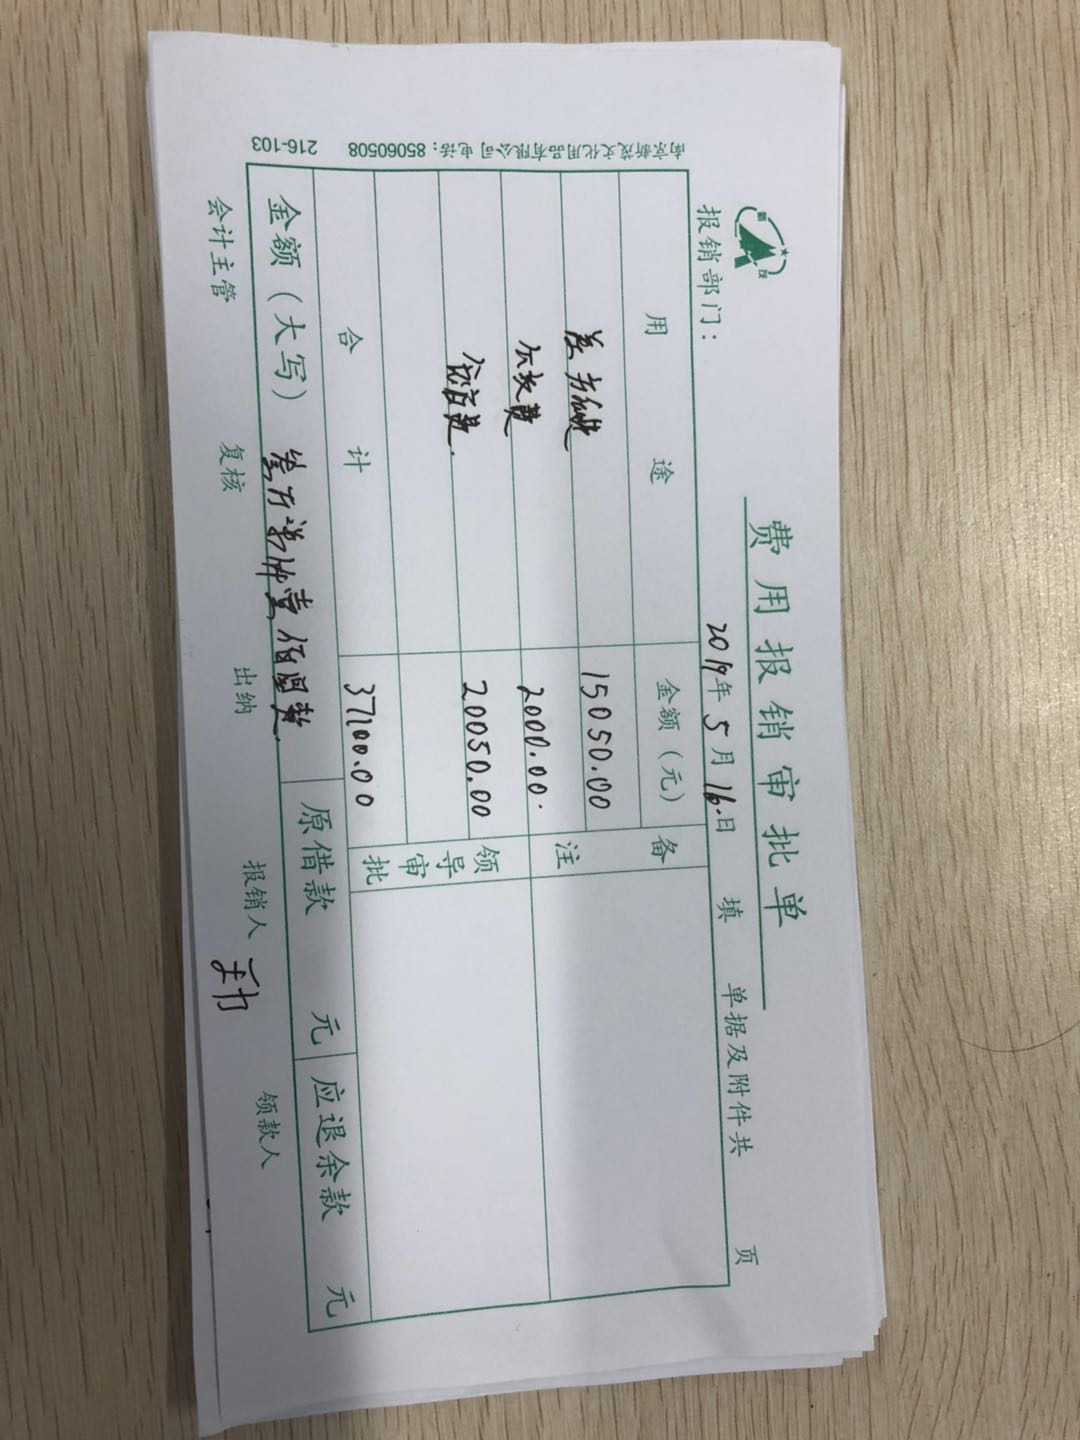 费用报销审批单
报销部门： 2019年5月16日 填 单据及附件共 页
用 途 金额（元） 备注
15050.00
公交费 2000.00
住宿费 20050.00
领导审批
合 计 37100.00
金额（大写） 叁万柒仟壹佰圆整 原借款 元 应退余款 元
会计主管 复核 出纳 报销人 领款人
南京新茂文化用品有限公司 电话：85060508 216-103